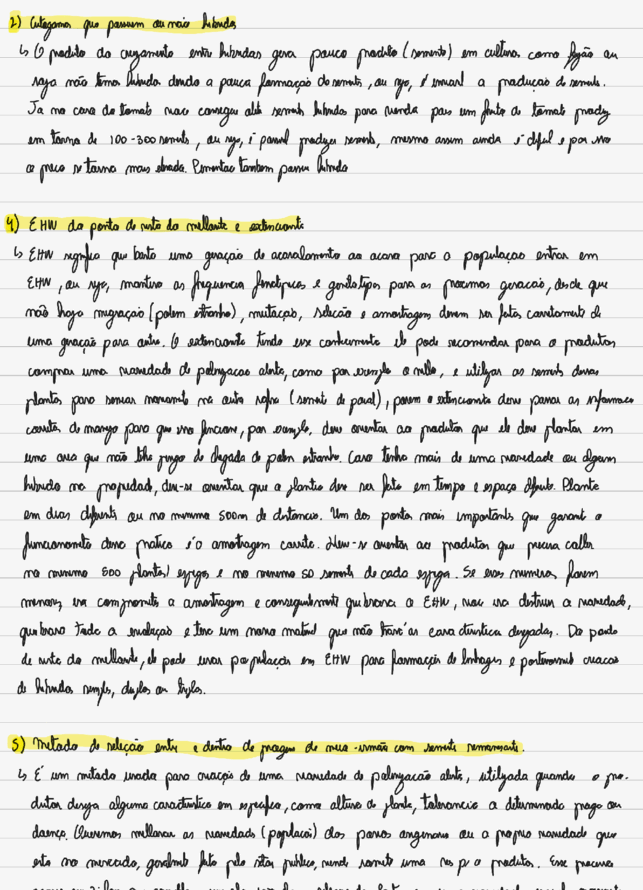 2) Categorias que possuem ou não híbridos
↳ O produto do cruzamento entre híbridas gera pouco produto (semente) em culturas como feijão ou
soja não temos híbrido devido a pouca formação de sements, ou seja, é inviável a produção de sements.
Ja no caso do tomate voce consegue obter sements híbridas para venda pois um fruto de tomate produz
em torno de 100-300 sements, ou seja, é possível produzir sements, mesmo assim ainda é difícil e por isso
o preço se torna mais elevado. Pimentao tambem possui híbrido
4) EHW do ponto de vista do melhorista e extensionista
↳ EHW significa que basta uma geração de acasalamento ao acaso para a população entrar em
EHW, ou seja, mantém as frequencias fenotípicas e genotípicas para as próximas geracoes, desde que
não haja migração (polem estranho), mutação, seleção e amostragem devem ser feitas corretamente de
uma geração para outra. O extensionista tendo esse conhecimento ele pode recomendar para o produtor
comprar uma variedade de polinização aberta, como por exemplo o milho, e utilizar as sements dessas
plantas para semear novamente na outra safra (semente de paiol), porem o extensionista deve passar as informacoes
corretas de manejo para que isso funcione, por exemplo, deve orientar ao produtor que ele deve plantar em
uma area que não tenha perigo de chegada de polen estranho. Caso tenha mais de uma variedade ou algum
híbrido na propriedade, deve-se orientar que o plantio deve ser feito em tempo e espaço diferente. Plante
em dias diferentes ou no minimo 500m de distancia. Um dos pontos mais importants que garante o
funcionamento dessa pratica é o amostragem correta. Deve-se orientar ao produtor que precisa colher
no minimo 500 plantas/espigas e no minimo 50 sements de cada espiga. Se esses numeros forem
menores, ira comprometer a amostragem e consequentemente quebrara o EHW, voce ira destruir a variedade,
quebrara toda a evolução e tera um novo material que não trará as características desejadas. Do ponto
de vista do melhorista, ele pode usar população em EHW para formação de linhagens e posteriormente criacao
de híbridos simples, duplos ou triplos.
5) Método de seleção entre e dentro de progenies de meio-irmãos com semente remanescente.
↳ É um metodo usado para criação de uma variedade de polinização aberta, utilizada quando o pro-
dutor deseja alguma característica em especifico, como altura de planta, tolerancia a determinada praga ou
doença. Queremos melhorar as variedades (população) dos
esta no mercado, geralmente feito pelo setor publico, vende somente uma vez p o produtor. Esse processo